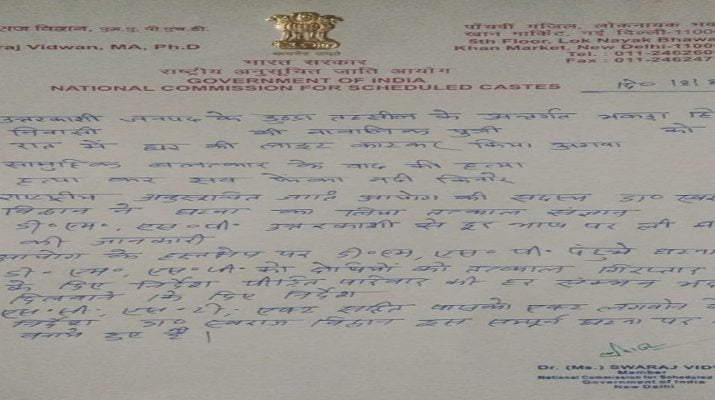 राज विद्वान, एम.ए. पी.एच.डी.
raj Vidwan, MA, Ph.D
पाँचवीं मंजिल, लोकनायक भव
खान मार्किट, नई दिल्ली-1100
5th Floor, Lok Nayak Bhawa
Khan Market, New Delhi-1100
Tel : 011-24620
Fax : 011-246247
भारत सरकार
राष्ट्रीय अनुसूचित जाति आयोग
GOVERNMENT OF INDIA
NATIONAL COMMISSION FOR SCHEDULED CASTES
उत्तरकाशी जनपद के डुण्डा तहसील के अन्तर्गत भकड़ा
निवासी की नाबालिक पुत्री को
रात में घर की लाइट काटकर किया अगवा
सामुहिक बलात्कार के बाद की हत्या
हत्या कर शव फेंका नदी किनारे
राष्ट्रीय अनुसूचित जाति आयोग की सदस्य डा० स्वरा
विद्वान ने घटना का लिया तत्काल संज्ञान
डी०एम०, एस०पी० उत्तरकाशी से दूरभाष पर ली घ
की जानकारी
आयोग के हस्तक्षेप पर डी०एम, एस०पी० पहुंचे घटना
डी० एम०, एस०पी० को दोषियों को तत्काल गिरफ्तार
के दिए निर्देश पीड़ित परिवार की हर संभव मद
दिलवाने के दिए निर्देश
एस०सी, एस०टी, एक्ट सहित पाक्सो एक्ट लगवाने के
निर्देश डा० स्वराज विद्वान इस सम्पूर्ण घटना पर
बनाये हुए है।
Dr. (Ms.) SWARAJ VID
Member
National Commission for Scheduled
Government of India
New Delhi